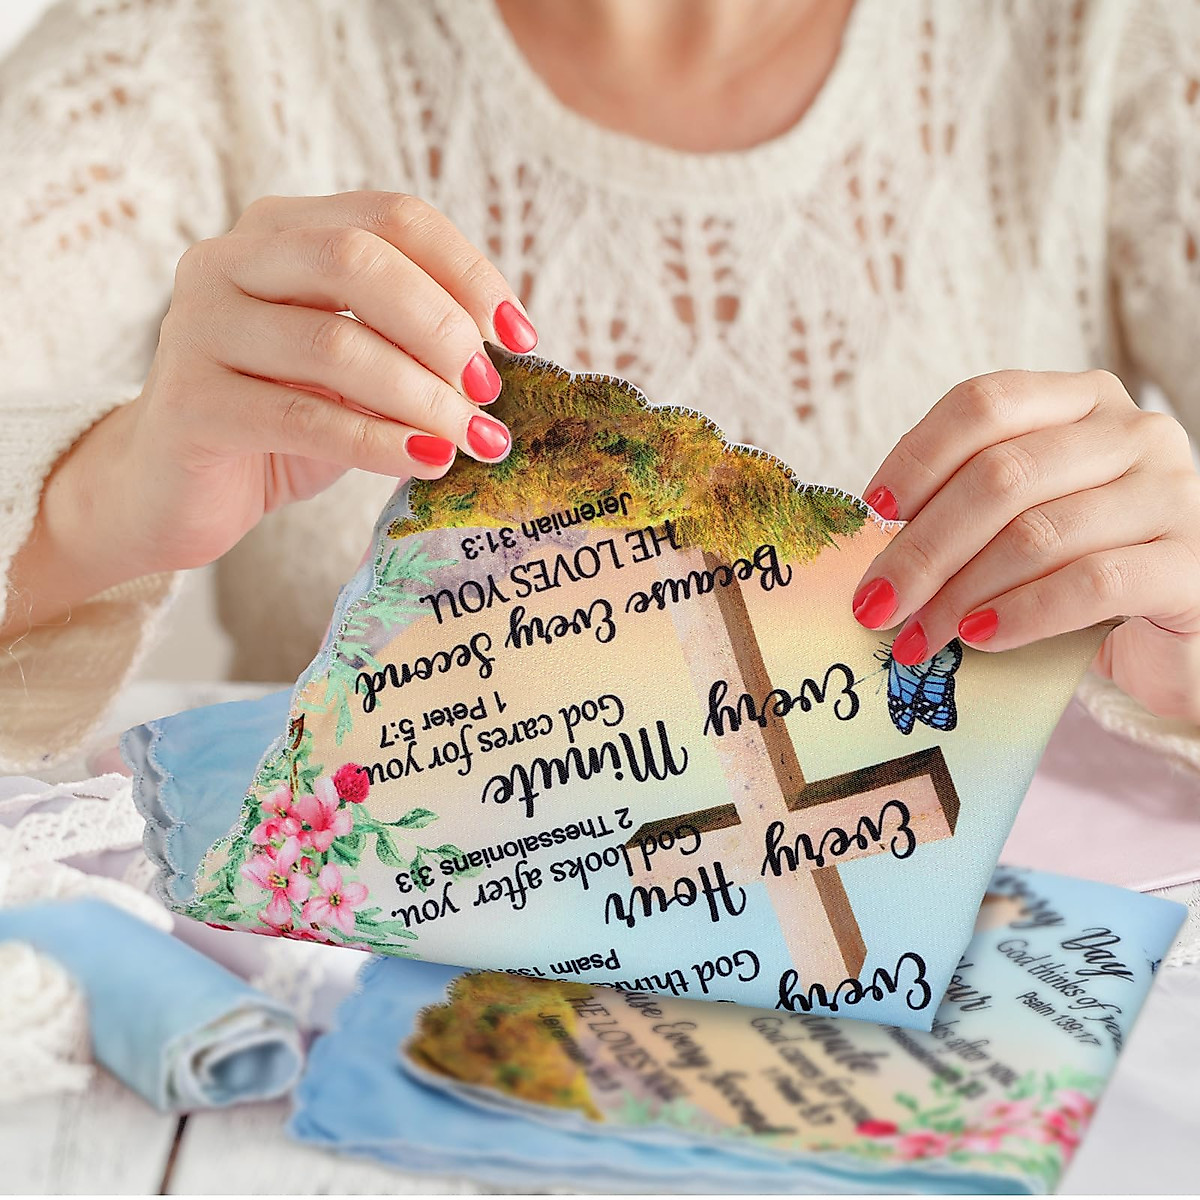 Every
God thinks
Psalm
Every Hour
God looks after you.
2 Thessalonians 3:3
Every Minute
God cares for you.
1 Peter 5:7
Because Every Second
HE LOVES YOU.
Jeremiah 31:3
Day
God thinks of
Psalm 139:17
after you.
God cares for you
1 Peter 5:7
Every Second
HE LOVES YOU.